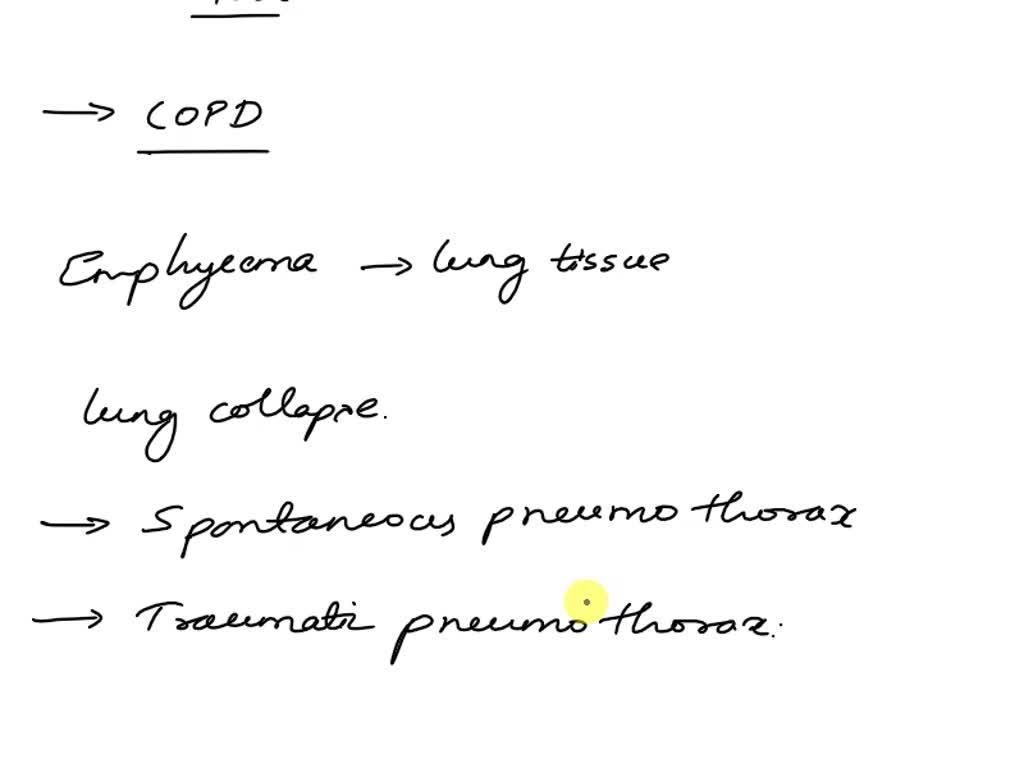 → COPD
Emphyecma → lung tissue
lung collapse.
→ Spontaneous pneumothorax
→ Traumatic pneumothorax.